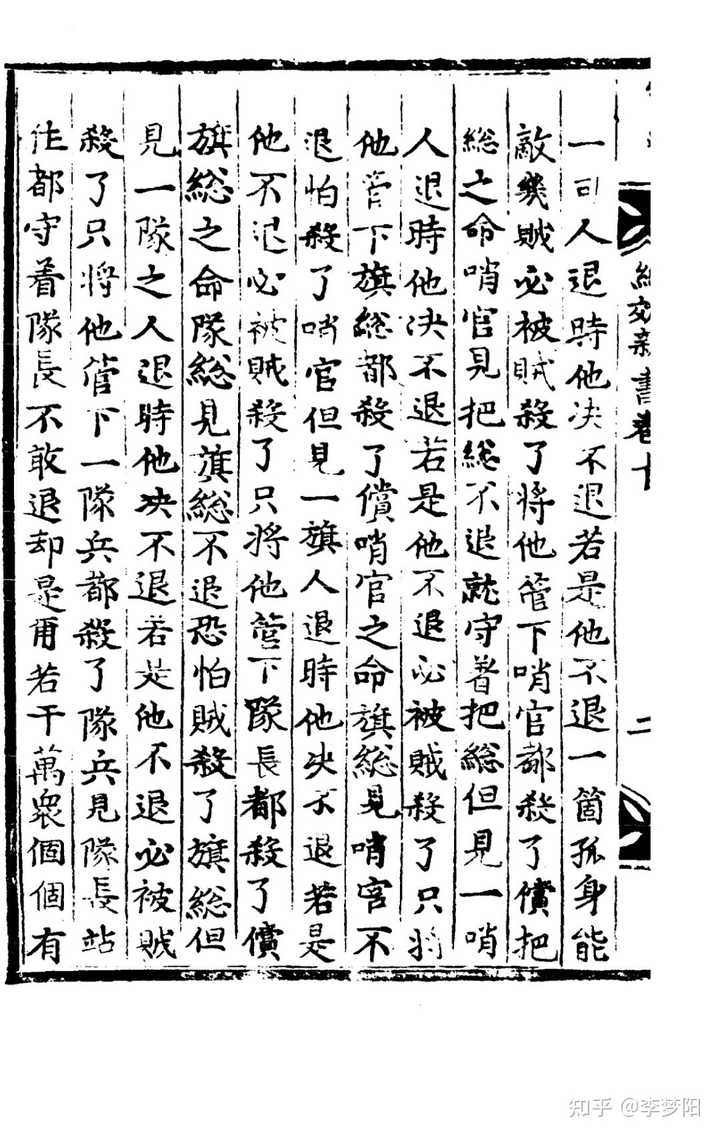 紀效新書卷十
二
一司人退時他决不退若是他不退一箇孤身能
敵幾賊必被賊殺了將他管下哨官都殺了償把
総之命哨官見把総不退就守着把総但見一哨
人退時他决不退若是他不退必被賊殺了只將
他管下旗総都殺了償哨官之命旗総見哨官不
退怕殺了哨官但見一旗人退時他决不退若是
他不退必被賊殺了只將他管下隊長都殺了償
旗総之命隊総見旗総不退恐怕賊殺了旗総但
見一隊之人退時他决不退若是他不退必被賊
殺了只將他管下一隊兵都殺了隊兵見隊長站
住都守着隊長不敢退却是爾若干萬衆個個有
知乎 @李梦阳